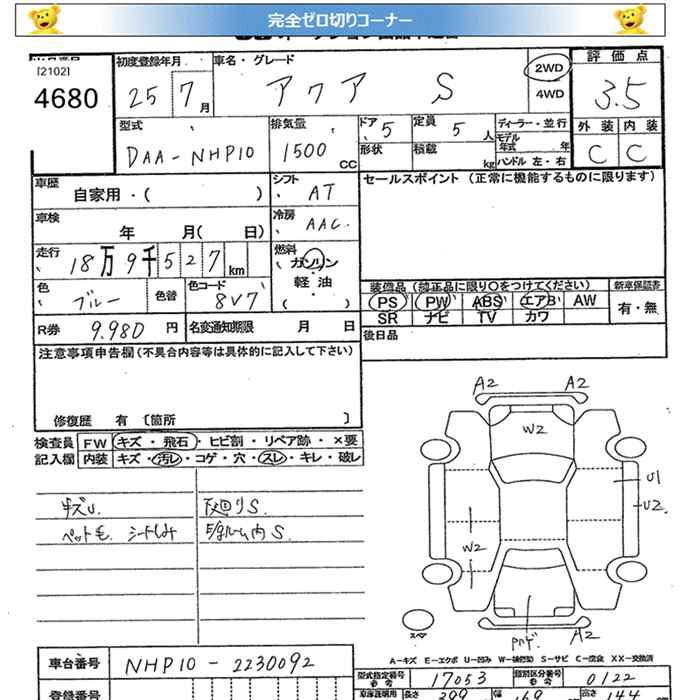 完全ゼロ切りコーナー
[2102]
4680
初度登録年月
25 7 月
車名・グレード
アクア S
2WD
4WD
評価点
3.5
外装 内装
C C
型式
DAA-NHP10
排気量
1500 CC
ドア 5
形状
定員 5 人
積載 kg
ディーラー・並行
モデル年式 年
ハンドル 左・右
車歴
自家用・( )
シフト
AT
車検
年 月( 日)
冷房
AAC
走行
18万9千527 km
燃料
ガソリン
軽油
( )
色
ブルー
色替
色コード
8V7
R券 9.980 円
名変通知期限 月 日
セールスポイント (正常に機能するものに限ります)
装備品 (純正品に限り○をつけてください)
新車保証書
PS PW ABS エアB AW
SR ナビ TV カワ
有・無
後日品
注意事項申告欄 (不具合内容等は具体的に記入して下さい)
修復歴 有 〔箇所 〕
検査員
記入欄
FW キズ・飛石・ヒビ割・リペア跡・×要
内装 キズ・汚レ・コゲ・穴・スレ・キレ・破レ
キズU.
ペット毛 シートしみ
下廻りS
E/gルーム内S
A2 A2
W2
U1
U2
W2
A2 A2
スペア
A-キズ E-エクボ U-凹み W-補修跡 S-サビ C-腐食 XX-交換済
車台番号
NHP10-2230092
型式指定番号
17053
類別区分番号
0122
登録番号
長さ 399
幅 169
高さ 144